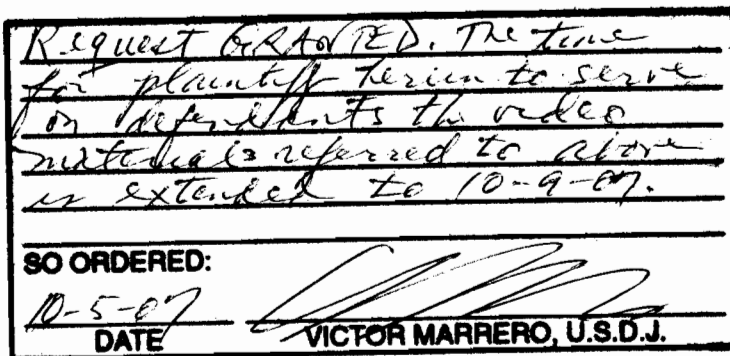 Request GRANTED. The time
for plaintiff herein to serve
on defendants the video
materials referred to above
is extended to 10-9-07.
SO ORDERED:
10-5-07
DATE VICTOR MARRERO, U.S.D.J.